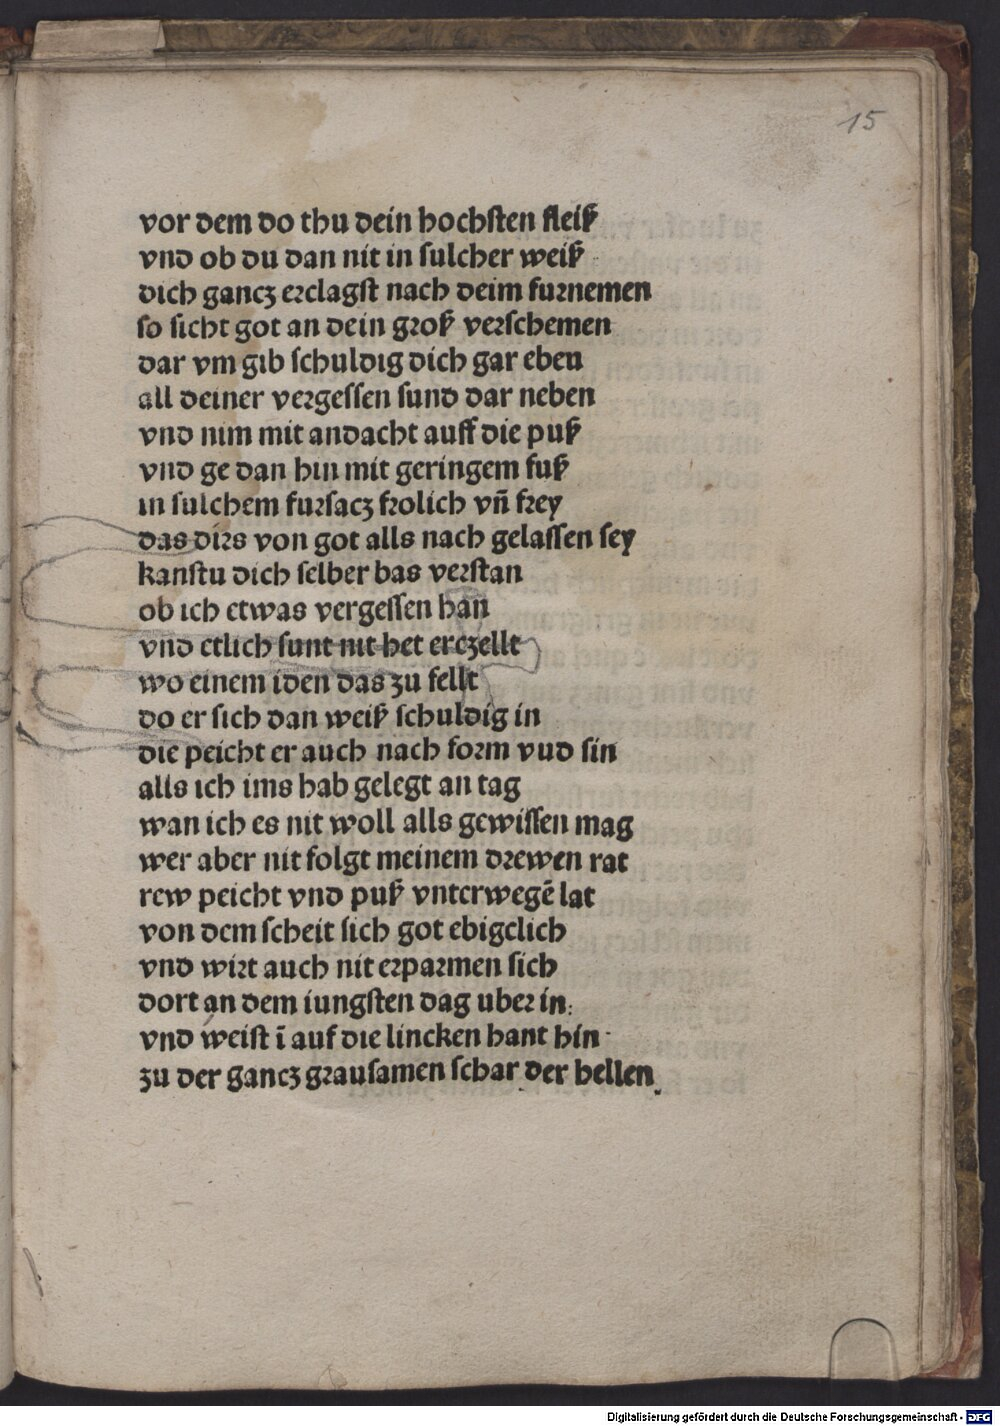 15
vor dem do thu dein hochsten fleiß
vnd ob du dan nit in sulcher weiß
dich gancz erclagst nach deim furnemen
so sicht got an dein groß verschemen
dar vm gib schuldig dich gar ebeu
all deiner vergessen sund dar neben
vnd nim mit andacht auff die puß
vnd ge dan hin mit geringem fuß
in sulchem fursacz frolich vñ frey
das dirs von got alls nach gelassen sey
kanstu dich selber bas verstan
ob ich etwas vergessen han
vnd etlich sunt nit het erczellt
wo einem iden das zu fellt
do er sich dan weiß schuldig in
die peicht er auch nach form vud sin
alls ich ims hab gelegt an tag
wan ich es nit woll alls gewissen mag
wer aber nit folgt meinem drewen rat
rew peicht vnd puß vnterwegē lat
von dem scheit sich got ebigclich
vnd wirt auch nit erparmen sich
dort an dem iungsten dag uber in:
vnd weist ī auf die lincken hant hin
zu der gancz grausamen schar der hellen.
Digitalisierung gefördert durch die Deutsche Forschungsgemeinschaft - DFG